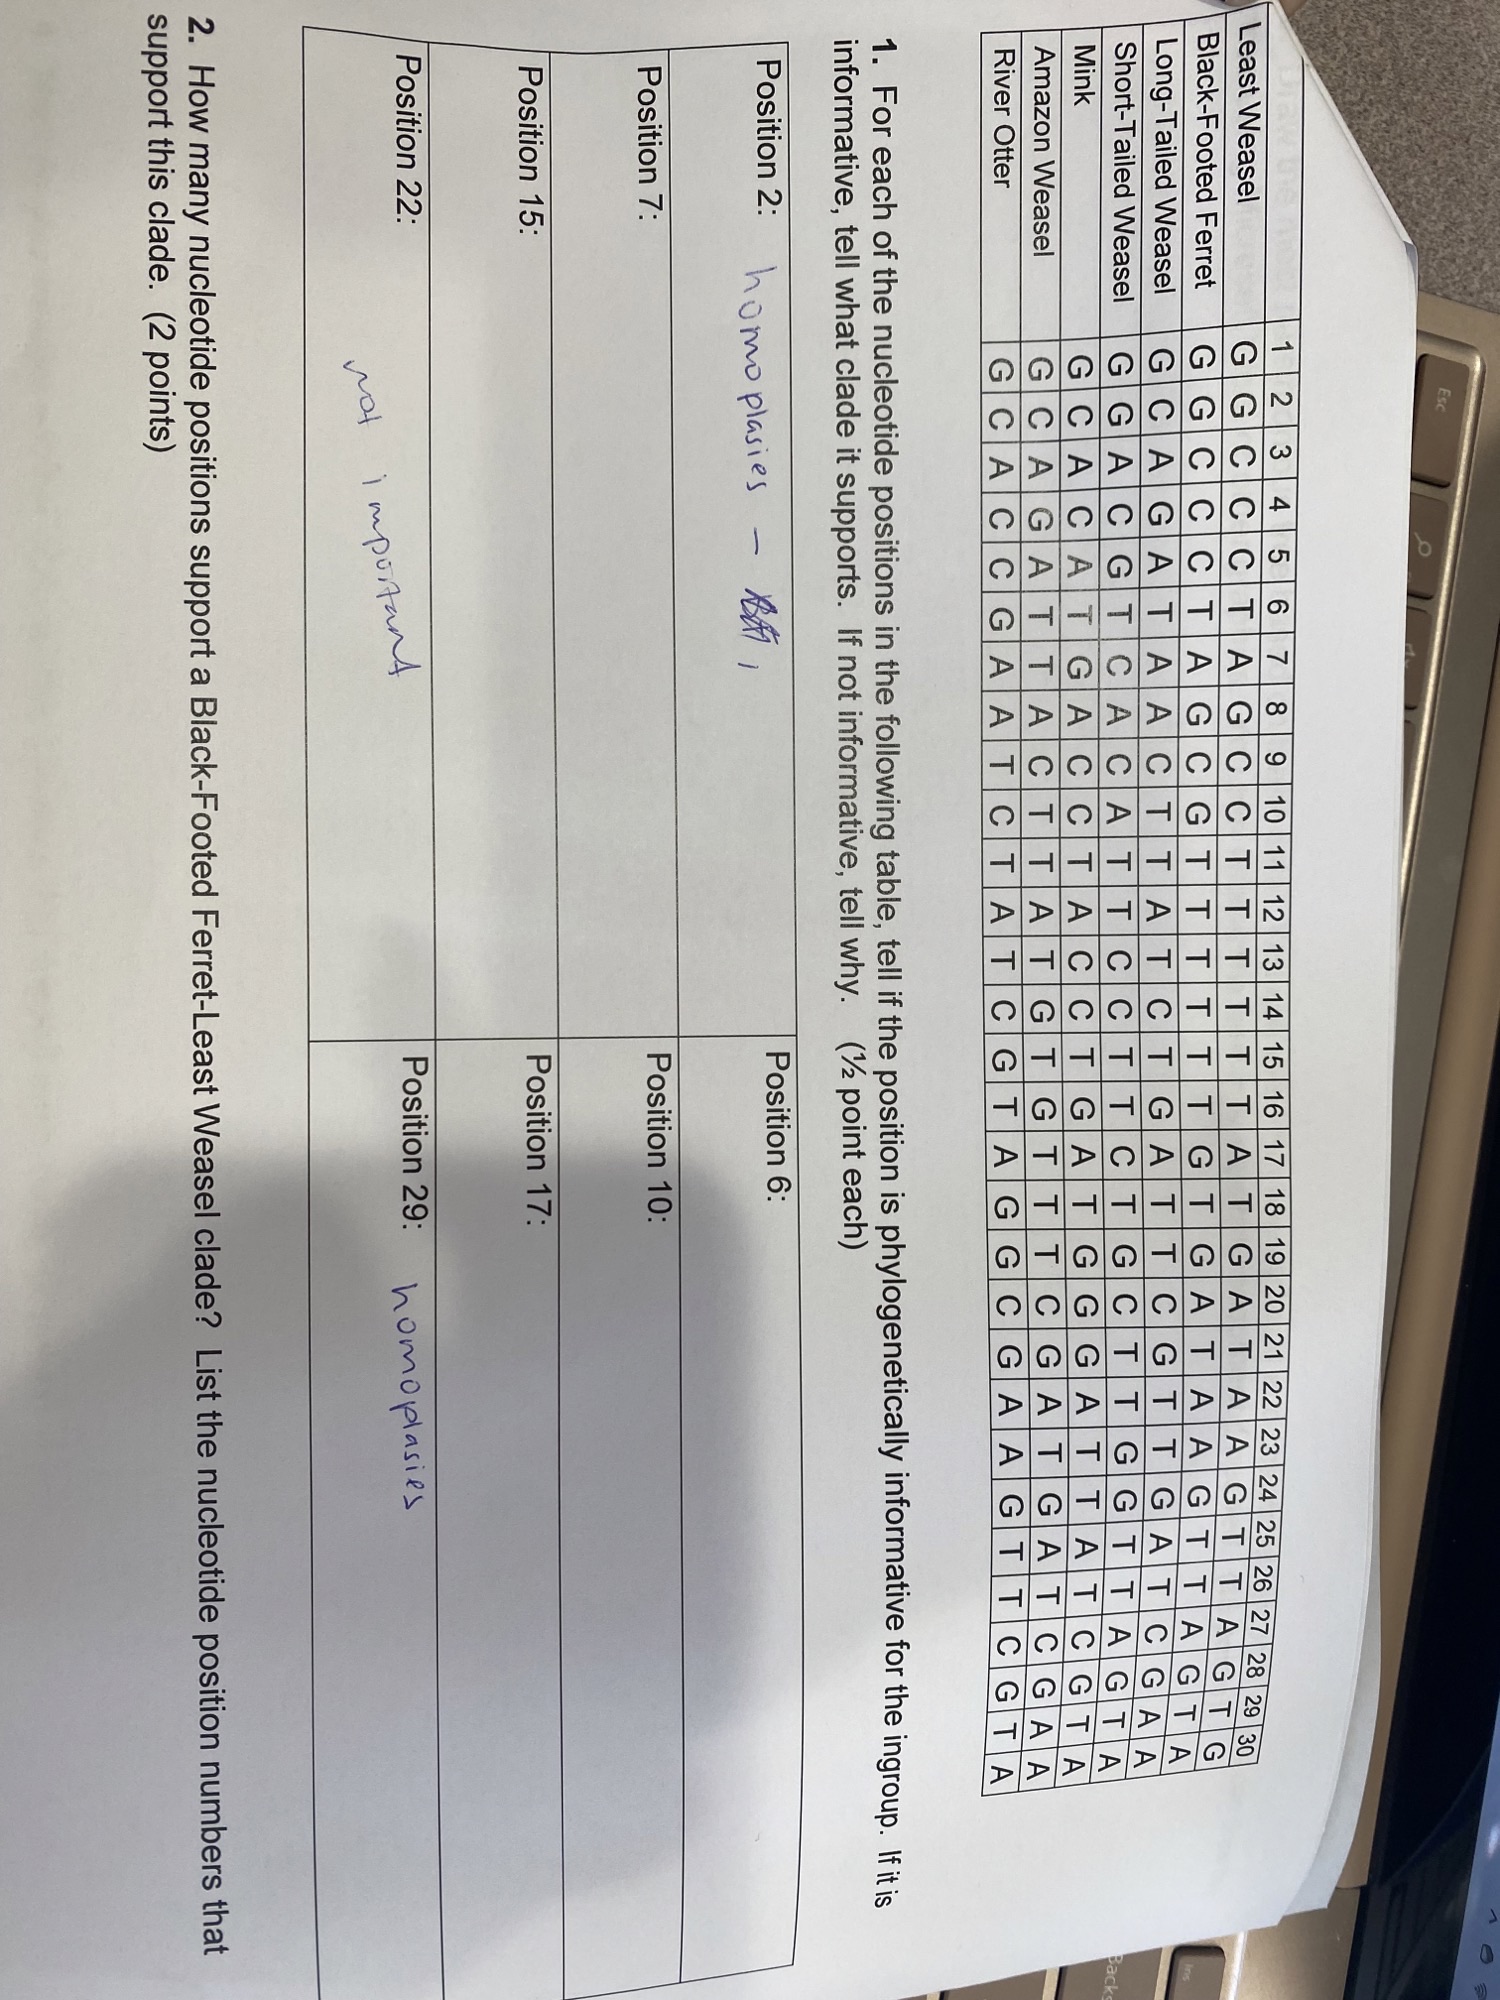 1 2 3 4 5 6 7 8 9 10 11 12 13 14 15 16 17 18 19 20 21 22 23 24 25 26 27 28 29 30
Least Weasel G G C C C T A G C C T T T T T T A T G A T A A G T T A G T G
Black-Footed Ferret G G C C C T A G C G T T T T T T G T G A T A A G T T A G T A
Long-Tailed Weasel G C A G A T A A C T T A T C T G A T T C G T T G A T C G A A
Short-Tailed Weasel G G A C G T C A C A T T C C T T C T G C T T G G T T A G T A
Mink G C A C A T G A C C T A C C T G A T G G G A T T A T C G T A
Amazon Weasel G C A G A T T A C T T A T G T G T T T C G A T G A T C G A A
River Otter G C A C C G A A T C T A T C G T A G G C G A A G T T C G T A
1. For each of the nucleotide positions in the following table, tell if the position is phylogenetically informative for the ingroup. If it is
informative, tell what clade it supports. If not informative, tell why. (½ point each)
Position 2: homoplasies –
Position 6:
Position 7:
Position 10:
Position 15:
Position 17:
Position 22: not important
Position 29: homoplasies
2. How many nucleotide positions support a Black-Footed Ferret-Least Weasel clade? List the nucleotide position numbers that
support this clade. (2 points)
Esc
Ins